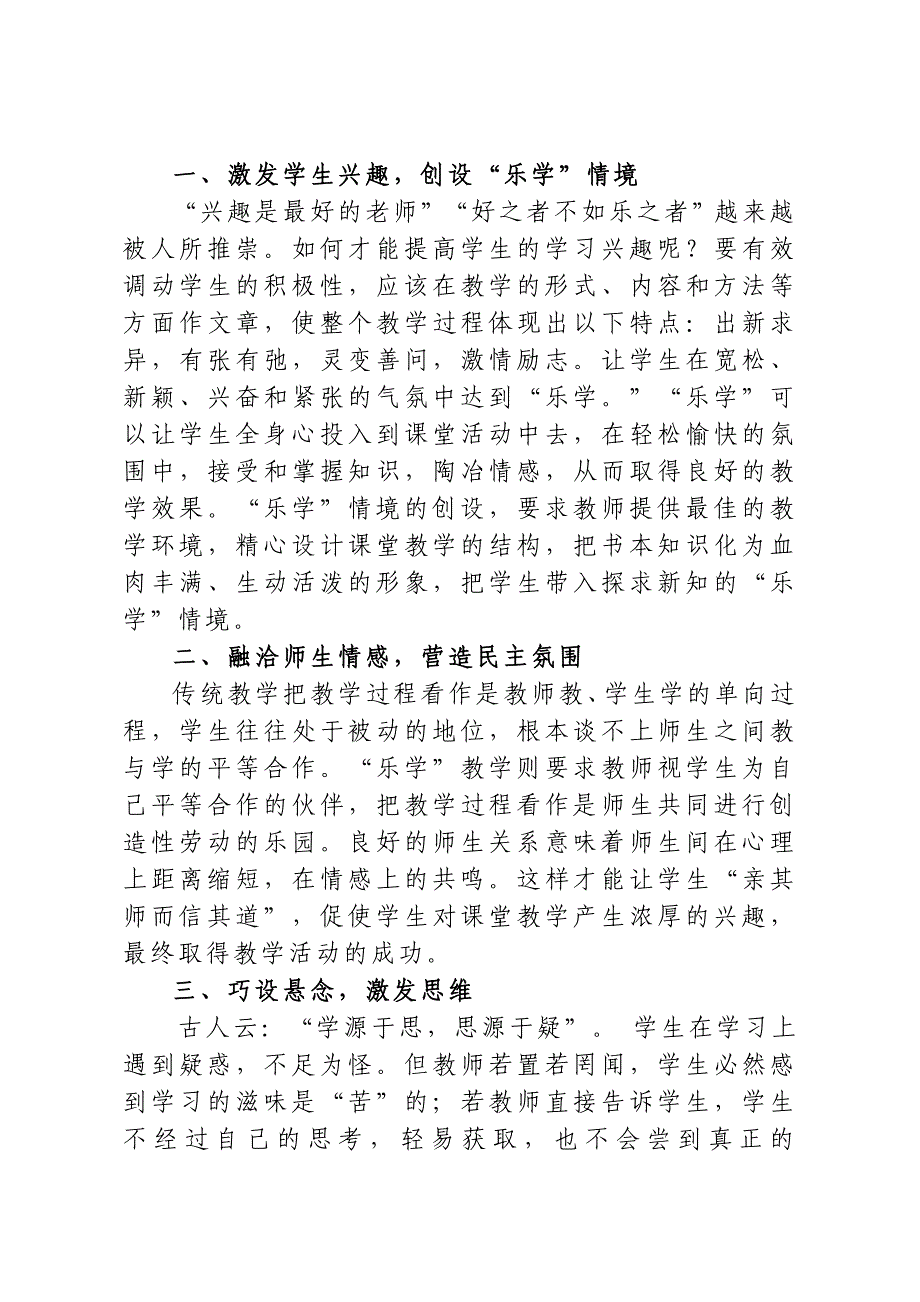 一、激发学生兴趣，创设“乐学”情境
“兴趣是最好的老师”“好之者不如乐之者”越来越
被人所推崇。如何才能提高学生的学习兴趣呢？要有效
调动学生的积极性，应该在教学的形式、内容和方法等
方面作文章，使整个教学过程体现出以下特点：出新求
异，有张有弛，灵变善问，激情励志。让学生在宽松、
新颖、兴奋和紧张的气氛中达到“乐学。”“乐学”可
以让学生全身心投入到课堂活动中去，在轻松愉快的氛
围中，接受和掌握知识，陶冶情感，从而取得良好的教
学效果。“乐学”情境的创设，要求教师提供最佳的教
学环境，精心设计课堂教学的结构，把书本知识化为血
肉丰满、生动活泼的形象，把学生带入探求新知的“乐
学”情境。
二、融洽师生情感，营造民主氛围
传统教学把教学过程看作是教师教、学生学的单向过
程，学生往往处于被动的地位，根本谈不上师生之间教
与学的平等合作。“乐学”教学则要求教师视学生为自
己平等合作的伙伴，把教学过程看作是师生共同进行创
造性劳动的乐园。良好的师生关系意味着师生间在心理
上距离缩短，在情感上的共鸣。这样才能让学生“亲其
师而信其道”，促使学生对课堂教学产生浓厚的兴趣，
最终取得教学活动的成功。
三、巧设悬念，激发思维
古人云：“学源于思，思源于疑”。 学生在学习上
遇到疑惑，不足为怪。但教师若置若罔闻，学生必然感
到学习的滋味是“苦”的；若教师直接告诉学生，学生
不经过自己的思考，轻易获取，也不会尝到真正的